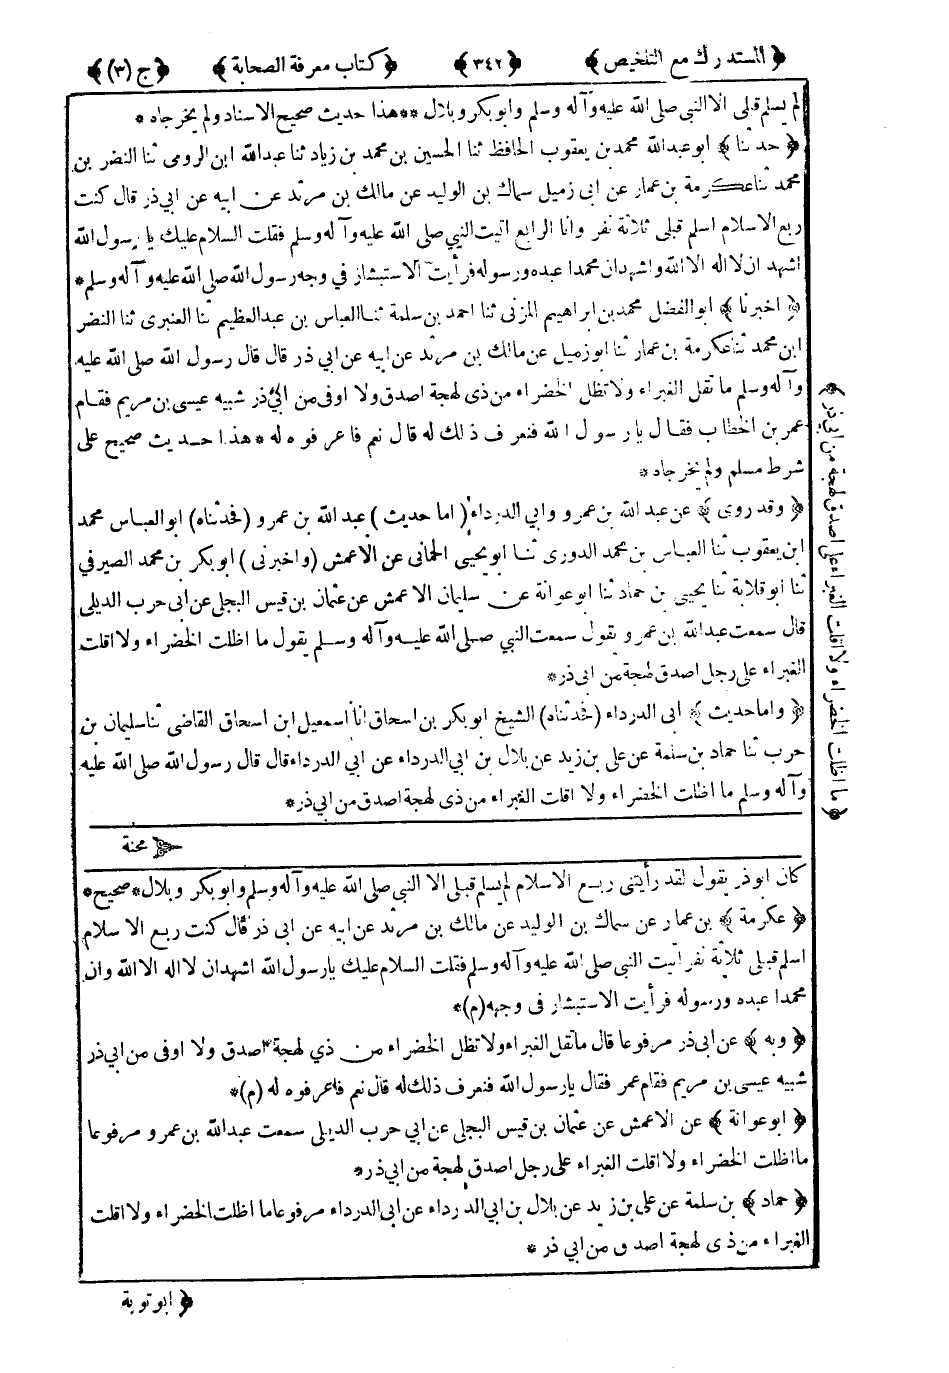 ﴿ المستدرك مع التلخيص ﴾ ﴿ ٣٤٢ ﴾ ﴿ كتاب معرفة الصحابة ﴾ ﴿ ج (٣) ﴾
لم يسلم قبلى الا النبى صلى الله عليه وآله وسلم وابوبكر وبلال ** هذا حديث صحيح الاسناد ولم يخرجاه *
﴿ حدثنا ﴾ ابو عبدالله محمد بن يعقوب الحافظ ثنا الحسين بن محمد بن زياد ثنا عبدالله ابن الرومى ثنا النضر بن
محمد ثنا عكرمة بن عمار عن ابى زميل سماك بن الوليد عن مالك بن مرثد عن ابيه عن ابي ذر قال كنت
ربع الاسلام اسلم قبلى ثلاثة نفر وانا الرابع اتيت النبي صلى الله عليه وآله وسلم فقلت السلام عليك يا رسول الله
اشهد ان لا اله الا الله واشهد ان محمدا عبده ورسوله فرأيت الاستبشار في وجه رسول الله صلى الله عليه وآله وسلم *
﴿ اخبرنا ﴾ ابو الفضل محمد بن ابراهيم المزنى ثنا احمد بن سلمة ثنا العباس بن عبدالعظيم ثنا العنبرى ثنا النضر
ابن محمد ثنا عكرمة بن عمار ثنا ابو زميل عن مالك بن مرثد عن ابيه عن ابي ذر قال قال رسول الله صلى الله عليه
وآله وسلم ما تقل الغبراء ولا تظل الخضراء من ذى لهجة اصدق ولا اوفى من ابي ذر شبيه عيسى بن مريم فقام
عمر بن الخطاب فقال يا رسول الله فنعرف ذلك له قال نعم فاعرفوه له * هذا حديث صحيح على
شرط مسلم ولم يخرجاه *
﴿ وقد روى ﴾ عن عبد الله بن عمرو وابي الدرداء (اما حديث) عبد الله بن عمرو (فحدثناه) ابو العباس محمد
ابن يعقوب ثنا العباس بن محمد الدورى ثنا ابو يحيى الحمانى عن الاعمش (واخبرنى) ابو بكر بن محمد الصيرفي
ثنا ابو قلابة ثنا يحيى بن حماد ثنا ابو عوانة عن سليمان الاعمش عن عثمان بن قيس البجلى عن ابى حرب الديلى
قال سمعت عبدالله بن عمرو يقول سمعت النبي صلى الله عليه وآله وسلم يقول ما اظلت الخضراء ولا اقلت
الغبراء على رجل اصدق لهجة من ابى ذر *
﴿ واما حديث ﴾ ابى الدرداء (فحدثناه) الشيخ ابو بكر بن اسحاق انا اسمعيل ابن اسحاق القاضى ثنا سليمان بن
حرب ثنا حماد بن سلمة عن على بن زيد عن بلال بن ابي الدرداء عن ابي الدرداء قال قال رسول الله صلى الله عليه
وآله وسلم ما اظلت الخضراء ولا اقلت الغبراء من ذى لهجة اصدق من ابي ذر *
﴿ ما اظلت الخضراء ولا اقلت الغبراء على اصدق لهجة من ابي ذر ﴾
محنة
كان ابو ذر يقول لقد رأيتنى ربع الاسلام لم يسلم قبلى الا النبى صلى الله عليه وآله وسلم وابوبكر وبلال * صحيح *
﴿ عكرمة ﴾ بن عمار عن سماك بن الوليد عن مالك بن مرثد عن ابيه عن ابى ذر قال كنت ربع الاسلام
اسلم قبلى ثلاثة نفر اتيت النبى صلى الله عليه وآله وسلم فقلت السلام عليك يا رسول الله اشهد ان لا اله الا الله وان
محمدا عبده ورسوله فرأيت الاستبشار فى وجهه (م) *
﴿ وبه ﴾ عن ابى ذر مرفوعا قال ما تقل الغبراء ولا تظل الخضراء من ذي لهجة اصدق ولا اوفى من ابي ذر
شبيه عيسى بن مريم فقام عمر فقال يا رسول الله فنعرف ذلك له قال نعم فاعرفوه له (م) *
﴿ ابو عوانة ﴾ عن الاعمش عن عثمان بن قيس البجلى عن ابي حرب الديلى سمعت عبدالله بن عمرو مرفوعا
ما اظلت الخضراء ولا اقلت الغبراء على رجل اصدق لهجة من ابي ذر *
﴿ حماد ﴾ بن سلمة عن على بن زيد عن بلال بن ابي الدرداء عن ابى الدرداء مرفوعا ما اظلت الخضراء ولا اقلت
الغبراء من ذى لهجة اصدق من ابي ذر *
﴿ ابو توبة